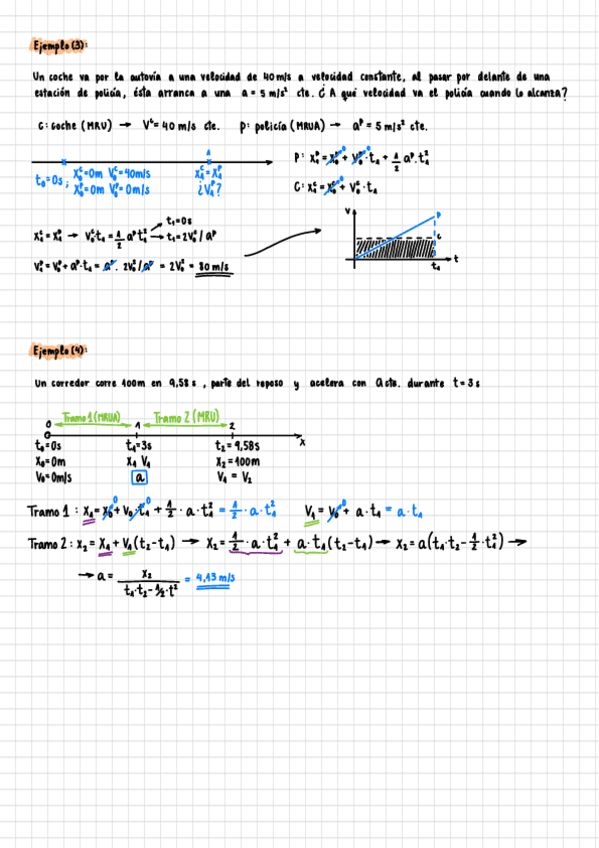 Ejemplo (3):
Un coche va por la autovía a una velocidad de 40 m/s a velocidad constante, al pasar por delante de una
estación de policía, ésta arranca a una a = 5 m/s² cte. ¿A qué velocidad va el policía cuando lo alcanza?
C: coche (MRU) → Vᶜ = 40 m/s cte. P: policía (MRUA) → aᴾ = 5 m/s² cte.
1
t₀ = 0s ; X₀ᶜ = 0m V₀ᶜ = 40m/s
X₀ᴾ = 0m V₀ᴾ = 0m/s
X₁ᶜ = X₁ᴾ
¿V₁ᴾ?
P: X₁ᴾ = X₀ᴾ 0 + V₀ᴾ 0 · t₁ + 1/2 aᴾ · t₁²
C: X₁ᶜ = X₀ᶜ 0 + V₀ᶜ · t₁
X₁ᶜ = X₁ᴾ → V₀ᶜ · t₁ = 1/2 aᴾ t₁² → t₁ = 0s
→ t₁ = 2V₀ᶜ / aᴾ
V₁ᴾ = V₀ᴾ + aᴾ · t₁ = aᴾ · 2V₀ᶜ / aᴾ = 2V₀ᶜ = 80 m/s
V P C t₁ t
Ejemplo (4):
Un corredor corre 100m en 9,58 s , parte del reposo y acelera con a cte. durante t = 3 s
Tramo 1 (MRUA) Tramo 2 (MRU)
0 1 2 x
t₀ = 0s t₁ = 3s t₂ = 9,58s
X₀ = 0m X₁ V₁ X₂ = 100m
V₀ = 0m/s a V₁ = V₂
Tramo 1 : X₁ = X₀ 0 + V₀ · t₁ 0 + 1/2 · a · t₁² = 1/2 · a · t₁² V₁ = V₀ 0 + a · t₁ = a · t₁
Tramo 2 : X₂ = X₁ + V₁ (t₂ - t₁) → X₂ = 1/2 · a · t₁² + a · t₁ (t₂ - t₁) → X₂ = a (t₁ · t₂ - 1/2 · t₁²) →
→ a = X₂ / (t₁ · t₂ - 1/2 · t²) = 4,13 m/s